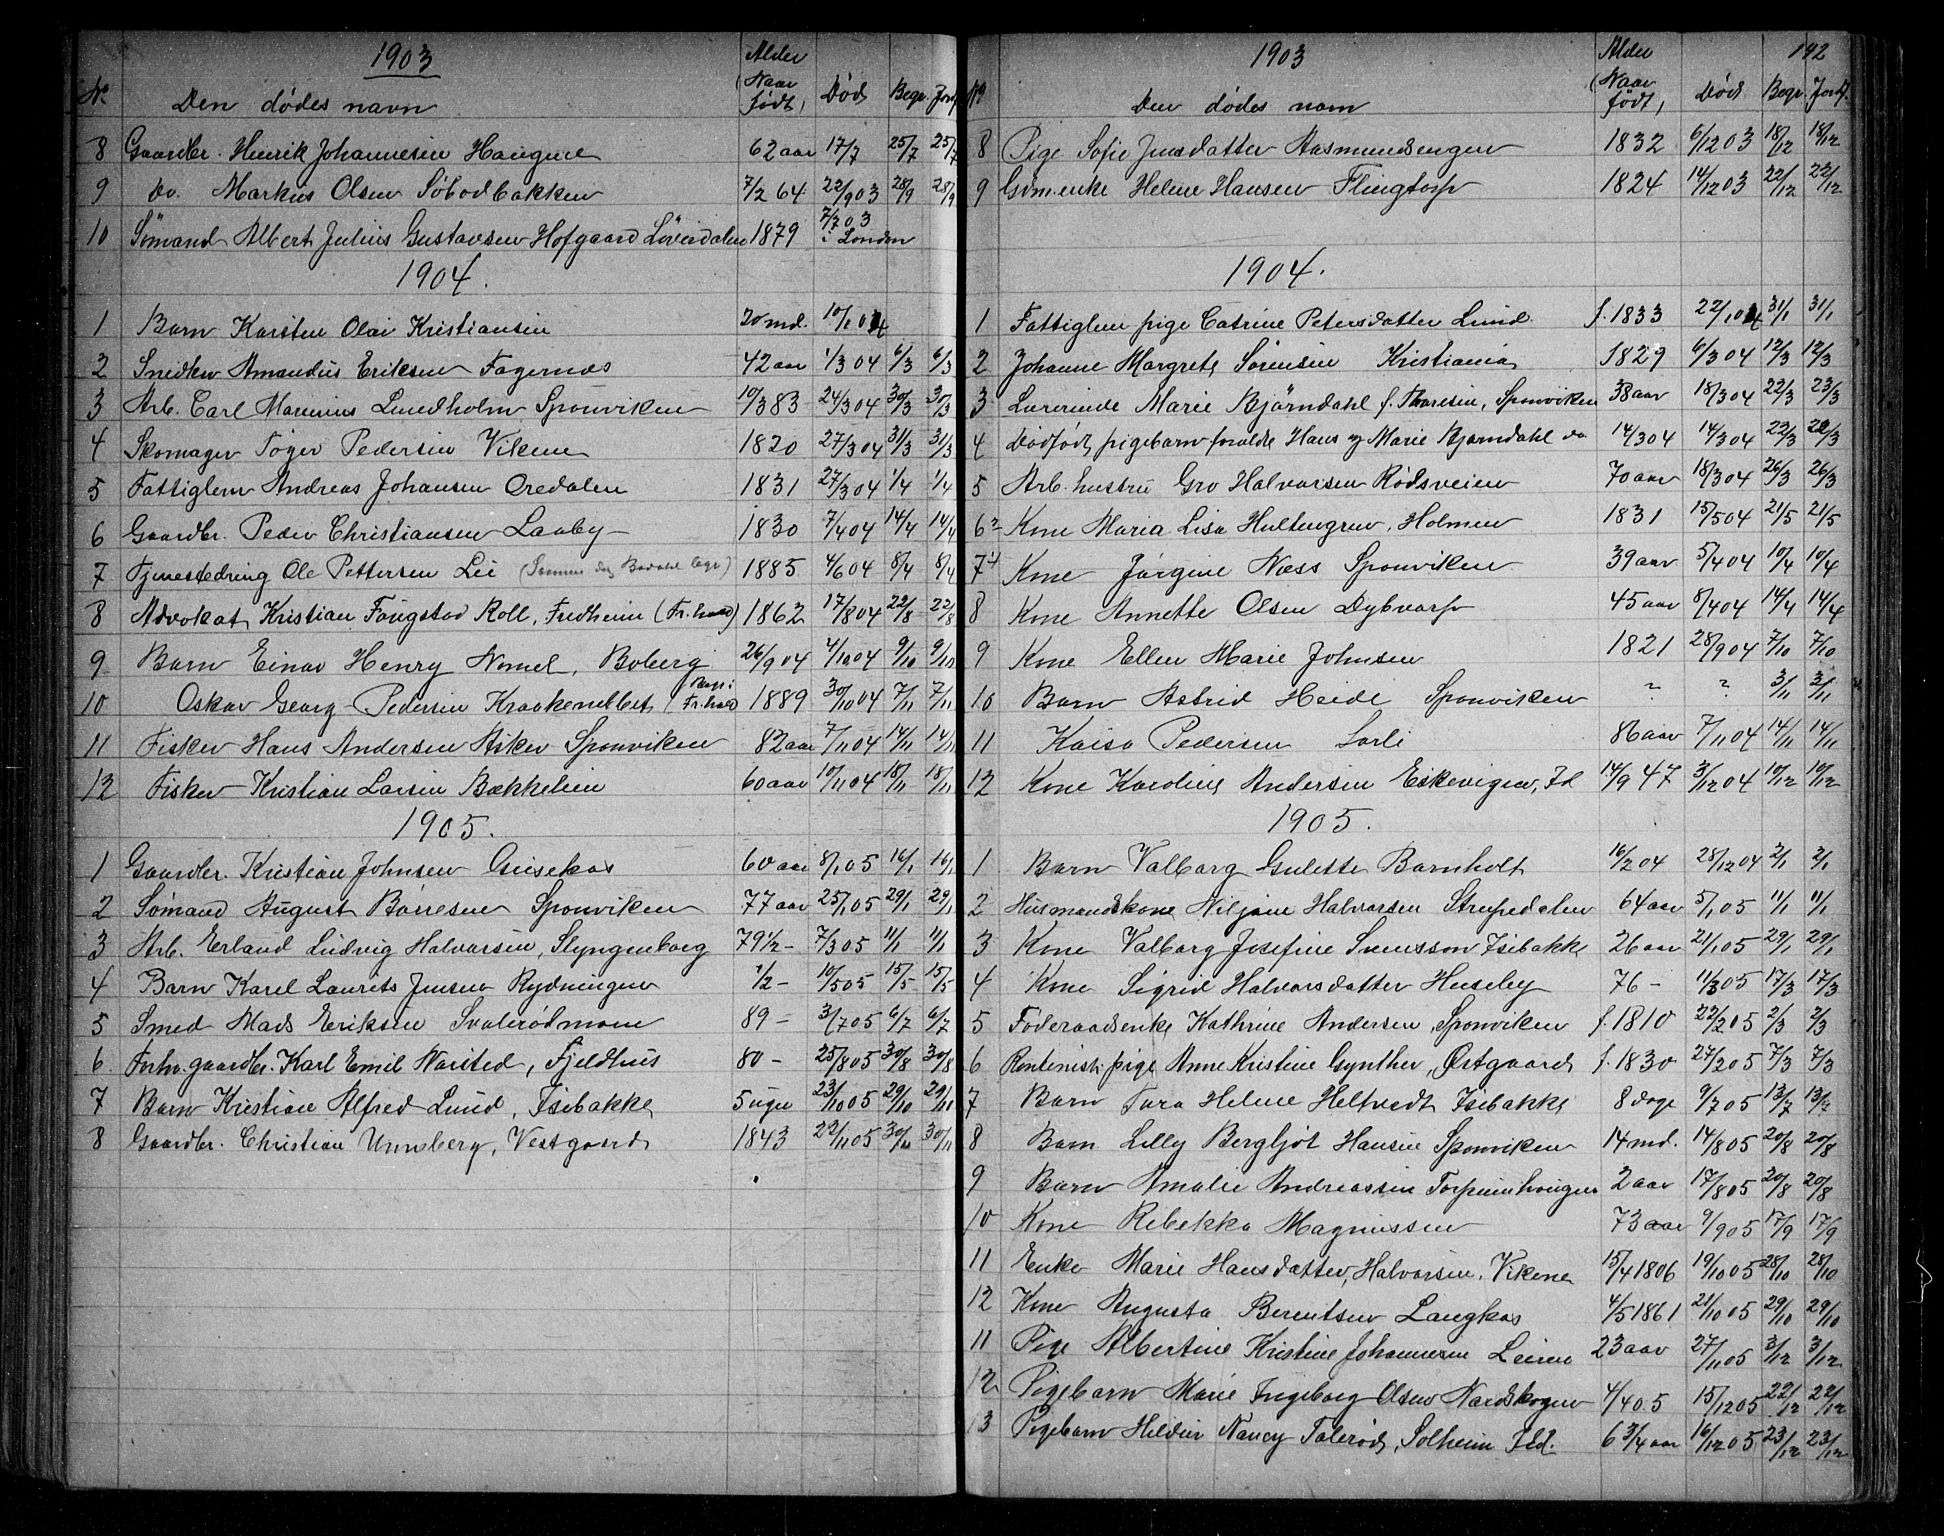 1903
Nr. Den dødes navn Alder (Naar født) Død Begr. Jordf.
8 Gaardbr. Henrik Johannesen Haugene 62 aar 17/7 25/7 25/7
9 do. Markus Olsen Sobodbakken 7/2 64 22/9 03 28/9 28/9
10 Sömand Albert Julius Gustavsen Hofgaard Løverdalen 1879 7/7 03 i London
1904.
1 Barn Karsten Olai Kristiansen 20 md. 10/1 04
2 Snedker Amandus Eriksen Fagernæs 42 aar 1/3 04 6/3 6/3
3 Arb. Carl Lundholm Sponviken 10/3 83 24/3 04 30/3 30/3
4 Skomager Töger Pedersen Vikene 1820 27/3 04 31/3 31/3
5 Fattiglem Andreas Johansen Oredalen 1831 27/3 04 1/4 1/4
6 Gaardbr. Peder Christiansen Laaby 1830 7/4 04 14/4 14/4
7 Tjenestedreng Ole Pettersen Lie 1885 4/6 04 8/4 8/4
8 Advokat Kristian Fougstad Roll, Fredheim (Fr.hald) 1862 17/8 04 22/8 22/8
9 Barn Einar Henry Nomel, Boberg 26/9 04 4/10 04 9/10 9/10
10 Oskar Georg Pedersen Kraakenebbet (Begr. i Fr.hald) 1889 30/10 04 7/11 7/11
11 Fisker Hans Andersen Asker Sponviken 82 aar 7/11 04 14/11 14/11
12 Fisker Kristian Larsen Bækkelien 60 aar 10/11 04 18/11 18/11
1905.
1 Gaardbr. Kristian Johnsen Grisekas 60 aar 8/1 05 16/1 16/1
2 Sømand August Børresen Sponviken 77 aar 25/1 05 29/1 29/1
3 Arb. Erland Ludvig Halvorsen, Slyngenborg 79 1/2 - 7/3 05 11/1 11/1
4 Barn Karel Laurets Jensen Rydningen 1/2 - 10/5 05 15/5 15/5
5 Smed Mads Eriksen Svalerødmone 89 - 3/7 05 6/7 6/7
6 Forhv. gaardbr. Karl Emil Norsted, Fjeldhus 80 - 25/8 05 30/8 30/8
7 Barn Kristian Alfred Lund, Isebakke 5 uger 23/10 05 29/10 29/10
8 Gaardbr. Christian Unnsberg, Vestgaard 1843 22/11 05 30/11 30/11
1903 142
Nr Den dødes navn Alder (Naar født) Død Begr. Jordf.
8 Pige Sofie Jensdatter Aasmundsengen 1832 6/12 03 18/12 18/12
9 Gdm.enke Helene Hansen Flingtorp 1824 14/12 03 22/12 22/12
1904.
1 Fattiglem pige Catrine Petersdatter Lund f. 1833 22/1 04 31/1 31/1
2 Johanne Margrete Sørensen Kristiania 1829 6/3 04 12/3 12/3
3 Lærerinde Marie Bjørndahl f. Thoresen, Sponviken 38 aar 18/3 04 22/3 23/3
4 Dødfødt pigebarn foreldre Hans og Marie Bjørndahl do 14/3 04 14/3 04 23/3 23/3
5 Arb. hustru Gro Halvorsen Rödsveien 70 aar 18/3 04 26/3 26/3
6 Kone Maria Lisa Hultengren, Holmen 1831 15/5 04 21/5 21/5
7 Kone Jørgine Næss Sponviken 39 aar 5/4 04 10/4 10/4
8 Kone Annette Olsen Dybvarp 45 aar 8/4 04 14/4 14/4
9 Kone Ellen Marie Johnsen 1821 28/9 04 7/10 7/10
10 Barn Astrid Heide Sponviken ? ? 3/11 3/11
11 Kaisa Pedersen Sorli 86 aar 7/11 04 14/11 14/11
12 Kone Karoline Andersen Eskevigen, Id 14/9 47 3/12 04 10/12 10/12
1905.
1 Barn Valborg Gulette Barnholt 16/2 04 28/12 04 2/1 2/1
2 Husmandskone Niljane Halvorsen Strupedalen 64 aar 5/1 05 11/1 11/1
3 Kone Valborg Josefine Svensson Isebakke 26 aar 21/1 05 29/1 29/1
4 Kone Sigrid Halvorsdatter Huseby 76 - 11/3 05 17/3 17/3
5 Föderaadsenke Kathrine Andersen, Sponviken f. 1810 22/2 05 2/3 2/3
6 Rentenist. pige Anne Kristine Gynther, Østgaard f. 1830 27/2 05 7/3 7/3
7 Barn Tora Helene Heltvedt Isebakke 8 dage 9/7 05 13/7 13/7
8 Barn Lilly Bergljot Hansen Sponviken 14 md. 14/8 05 20/8 20/8
9 Barn Amalie Andreassen Torpumhougen 2 aar 17/8 05 20/8 20/8
10 Kone Rebekka Magnussen 73 aar 9/9 05 17/9 17/9
11 Enke Marie Hansdatter, Halvorsen, Vikene 15/4 1806 19/10 05 28/10 28/10
12 Kone Augusta Berentsen Langkas 4/5 1861 21/10 05 29/10 29/10
11 Pige Albertine Kristine Johannesen Leiren 23 aar 27/11 05 3/12 3/12
12 Pigebarn Marie Ingeborg Olsen Nordskogen 4/4 0.5 15/12 05 22/12 22/12
13 Pigebarn Hildur Nancy Tolerød, Solheim Id. 6 3/4 aar 16/12 05 23/12 23/12